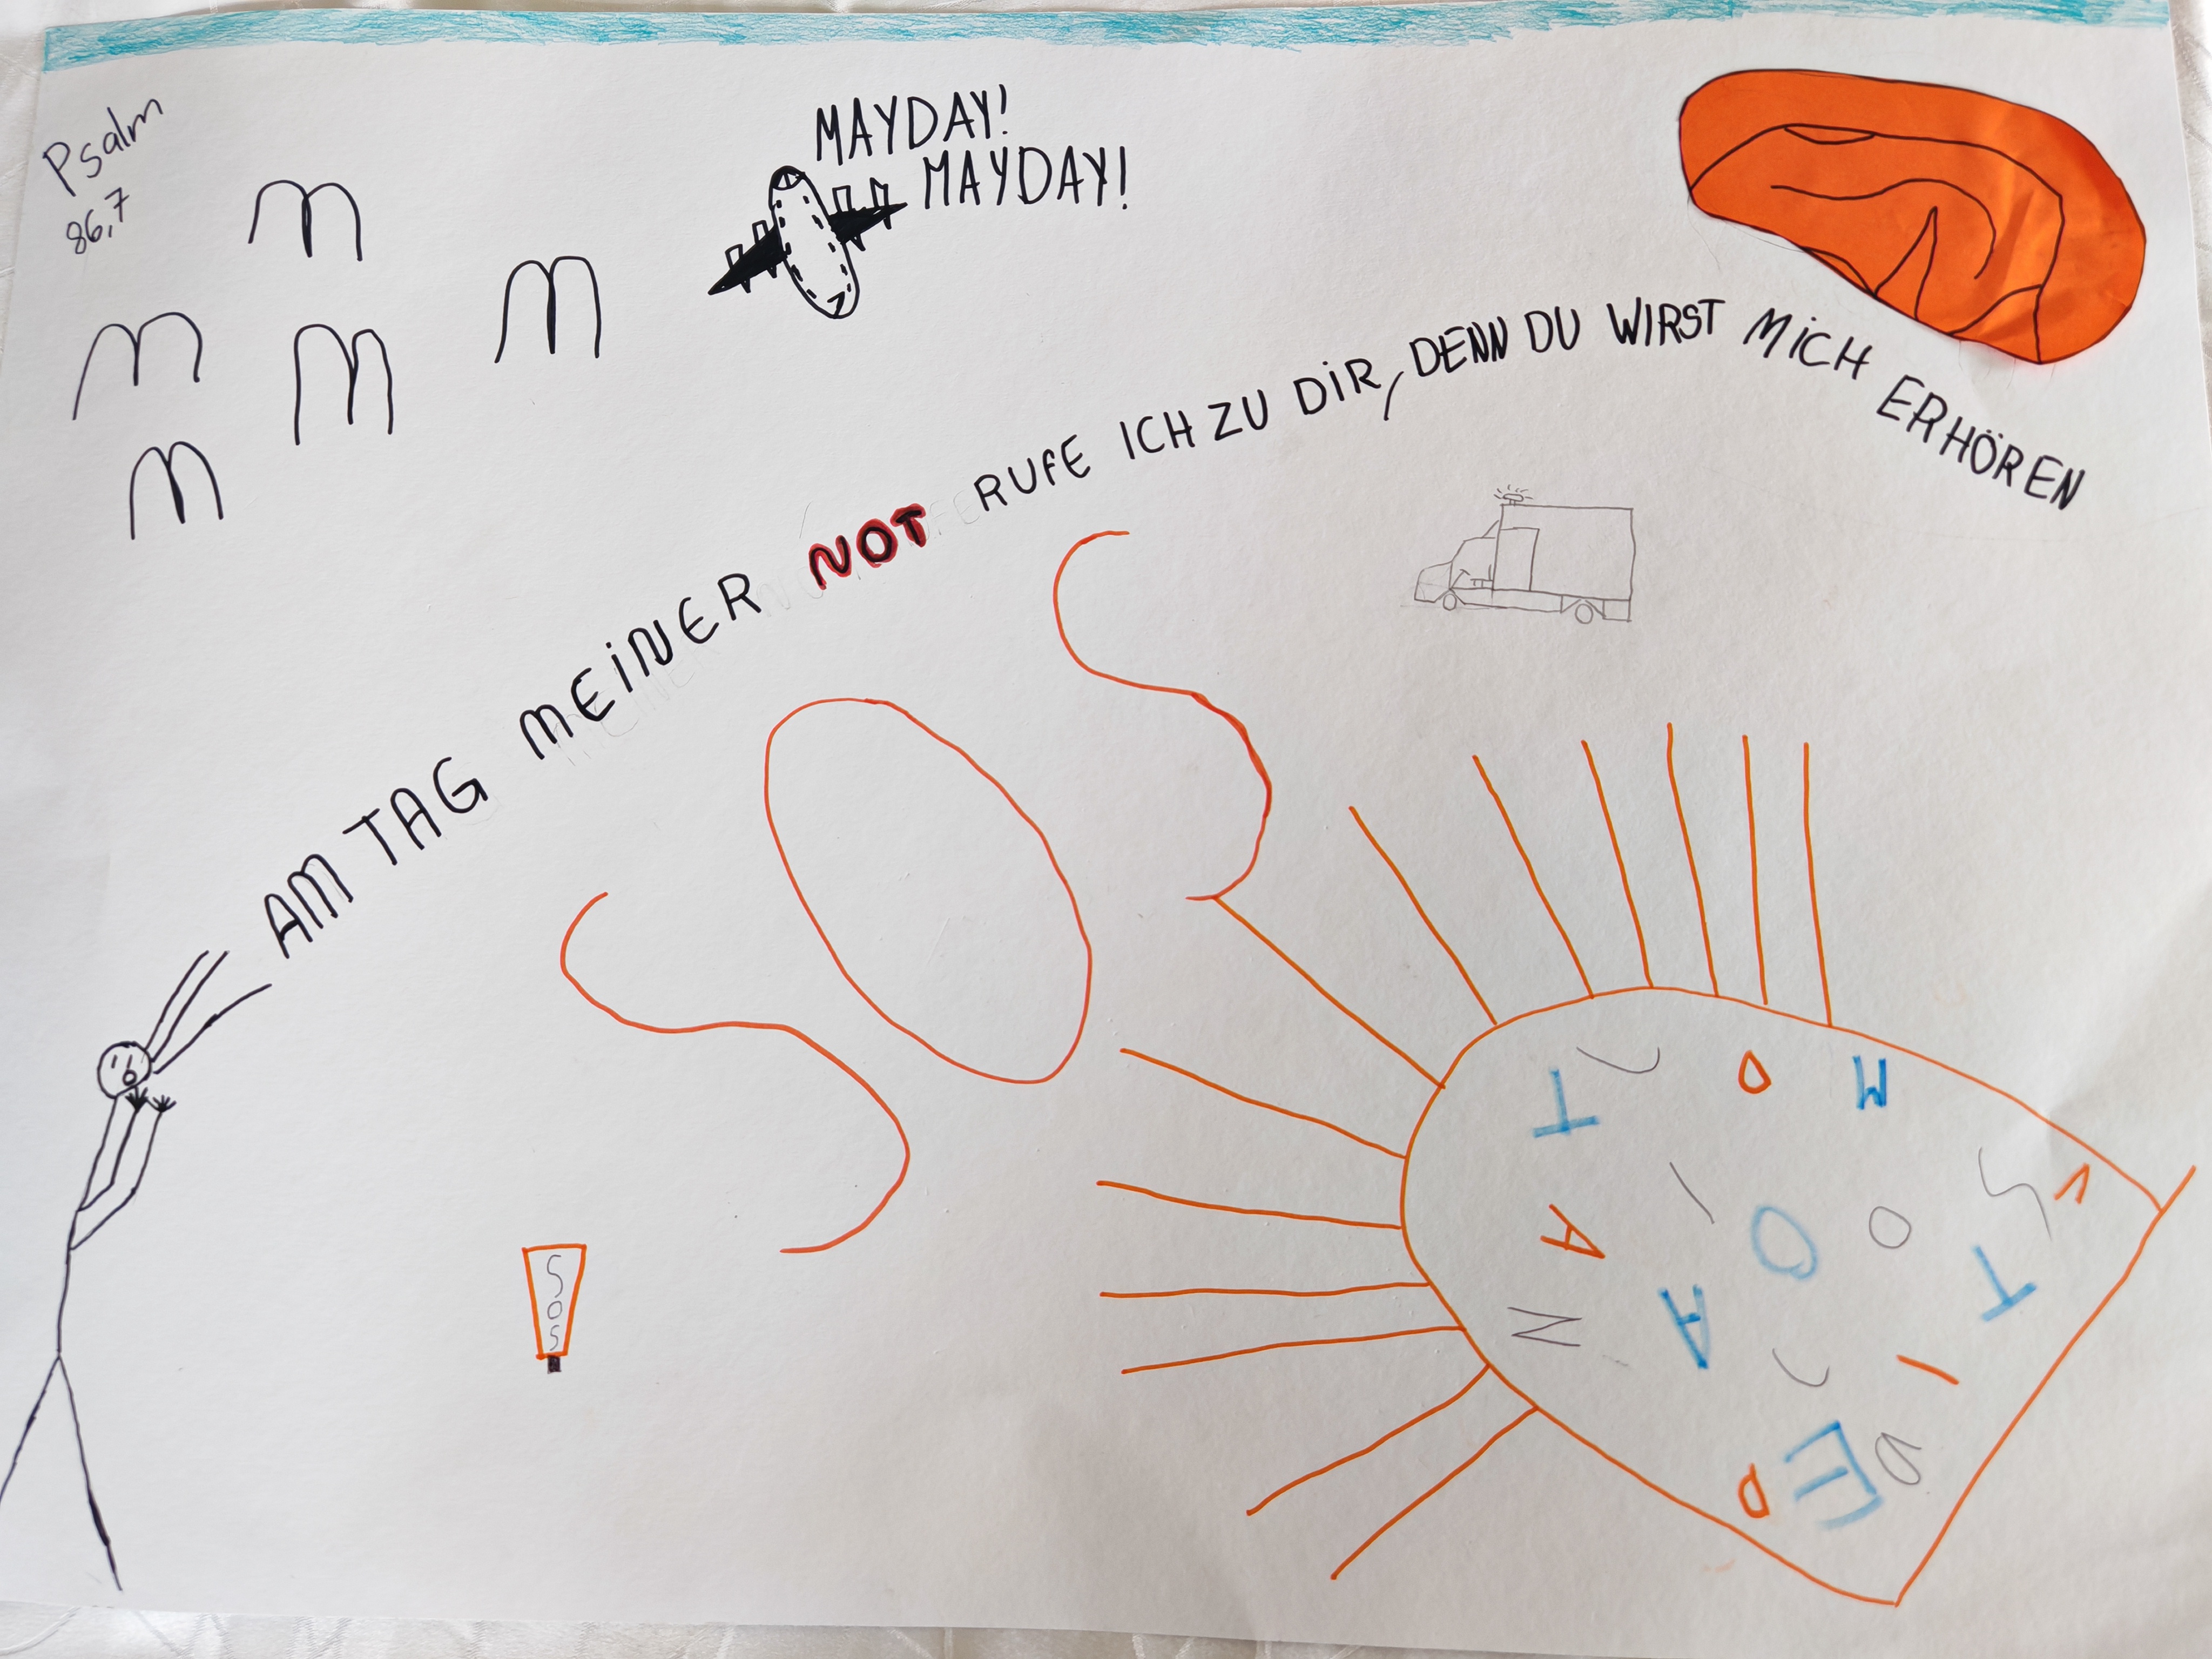 Psalm
86,7
MAYDAY!
MAYDAY!
AM TAG MEINER NOT RUFE ICH ZU DIR, DENN DU WIRST MICH ERHÖREN
SOS
SOS